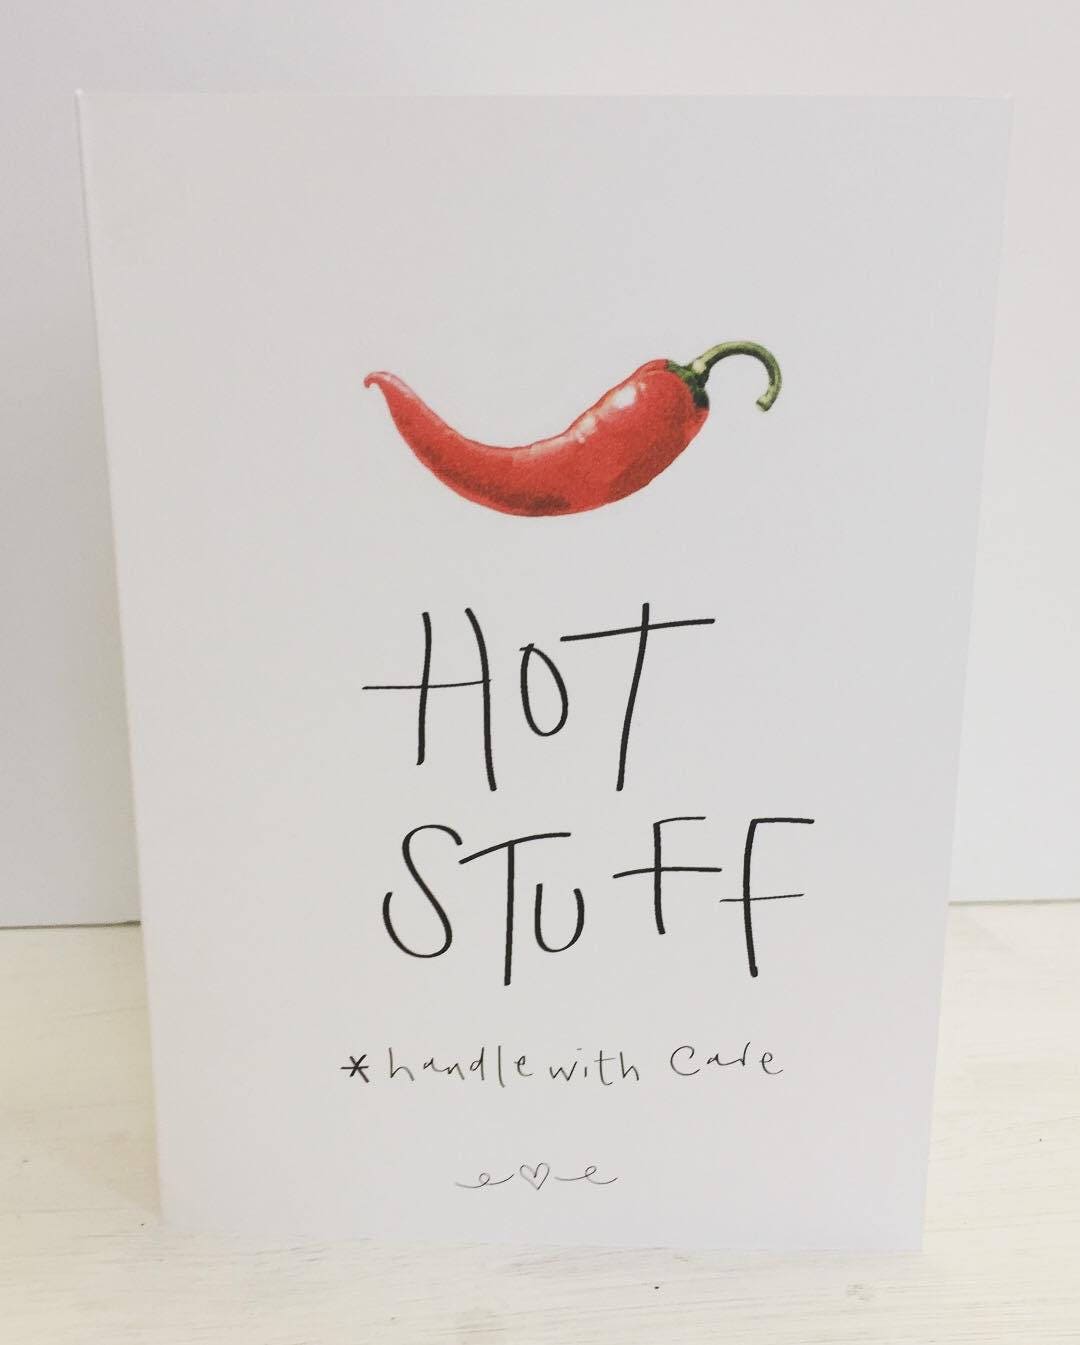 HOT
STUFF
*handle with care